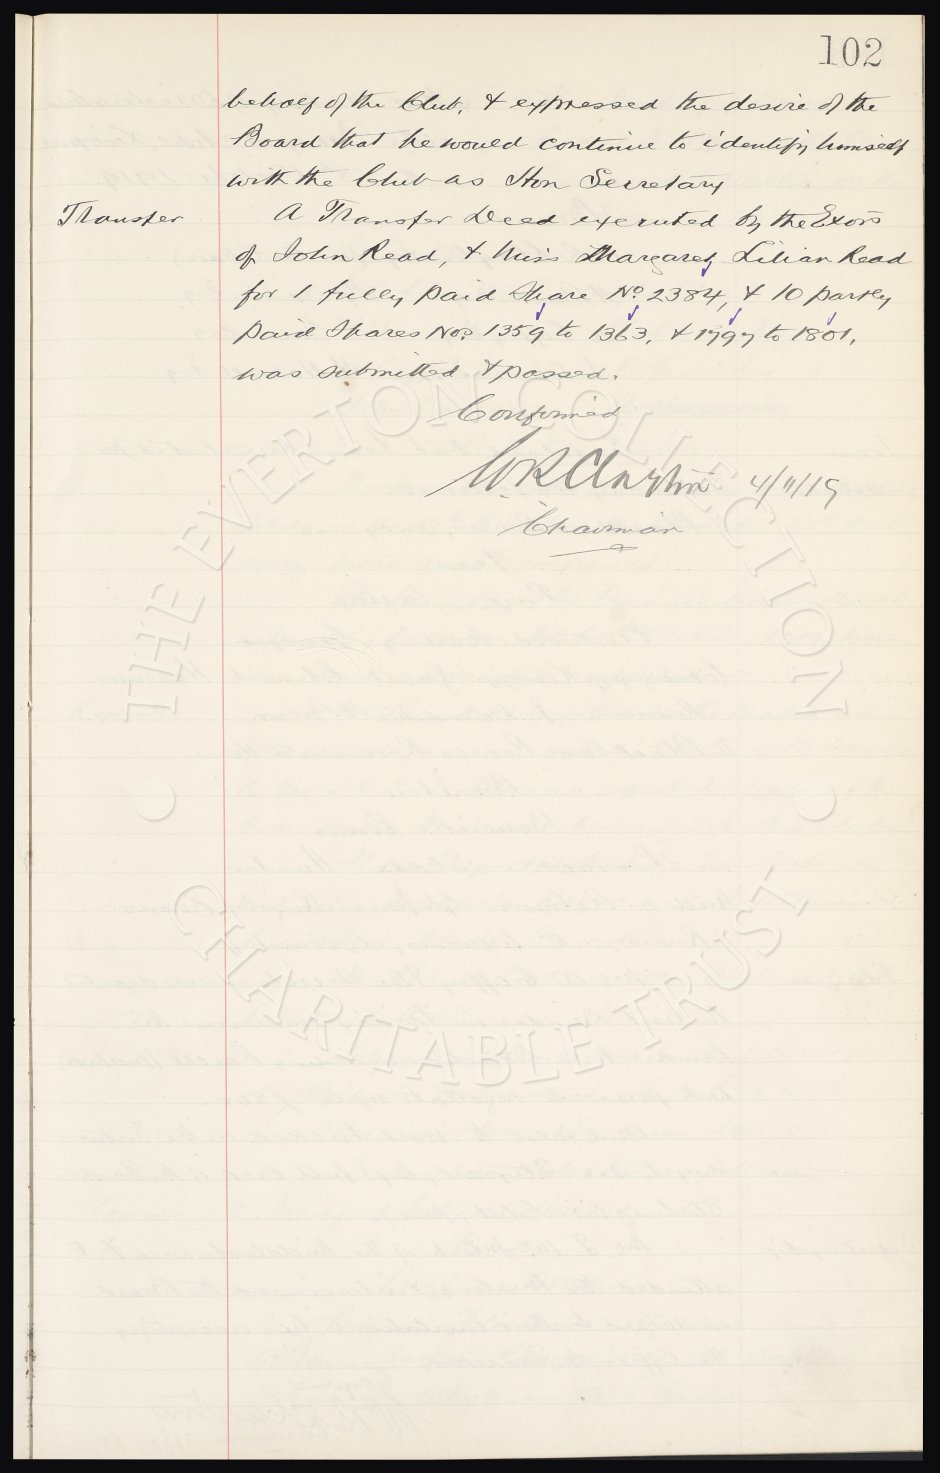 102
behalf of the Club, & expressed the desire of the
Board that he would continue to identify himself
with the Club as Hon Secretary
Transfer A Transfer Deed executed by the Exors
of John Read, & Miss Margaret Lilian Read
for 1 fully paid Share No. 2384, & 10 partly
paid Shares Nos. 1359 to 1363, & 1797 to 1801,
was submitted & passed.
Confirmed
W R Clayton 4/11/19
Chairman
THE EVERTON COLLECTION
CHARITABLE TRUST